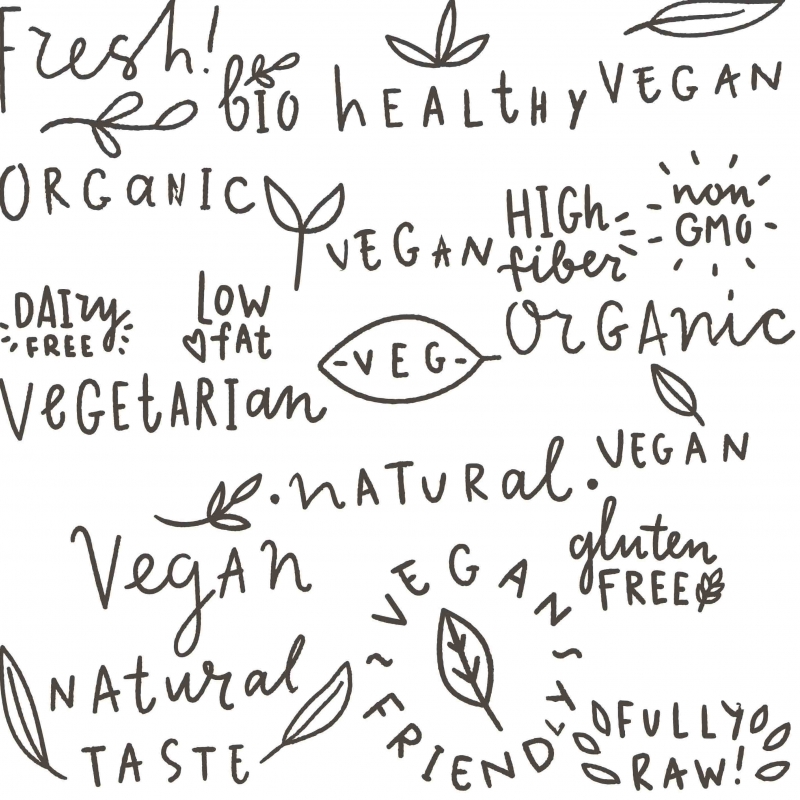 Fresh!
BIO
hEALtHY
VEGAN
ORGaNIC
VEGAN
HIGh
fiber
non
GMO
DAIry
FREE
LOW
fAt
-VEG-
OrGAnic
VeGEtARIan
VEGAN
·nATURal·
VegAn
gluten
FREE
VEGAN
~ FRIENDLY ~
NAtural
TASTE
FULLY
RAW!